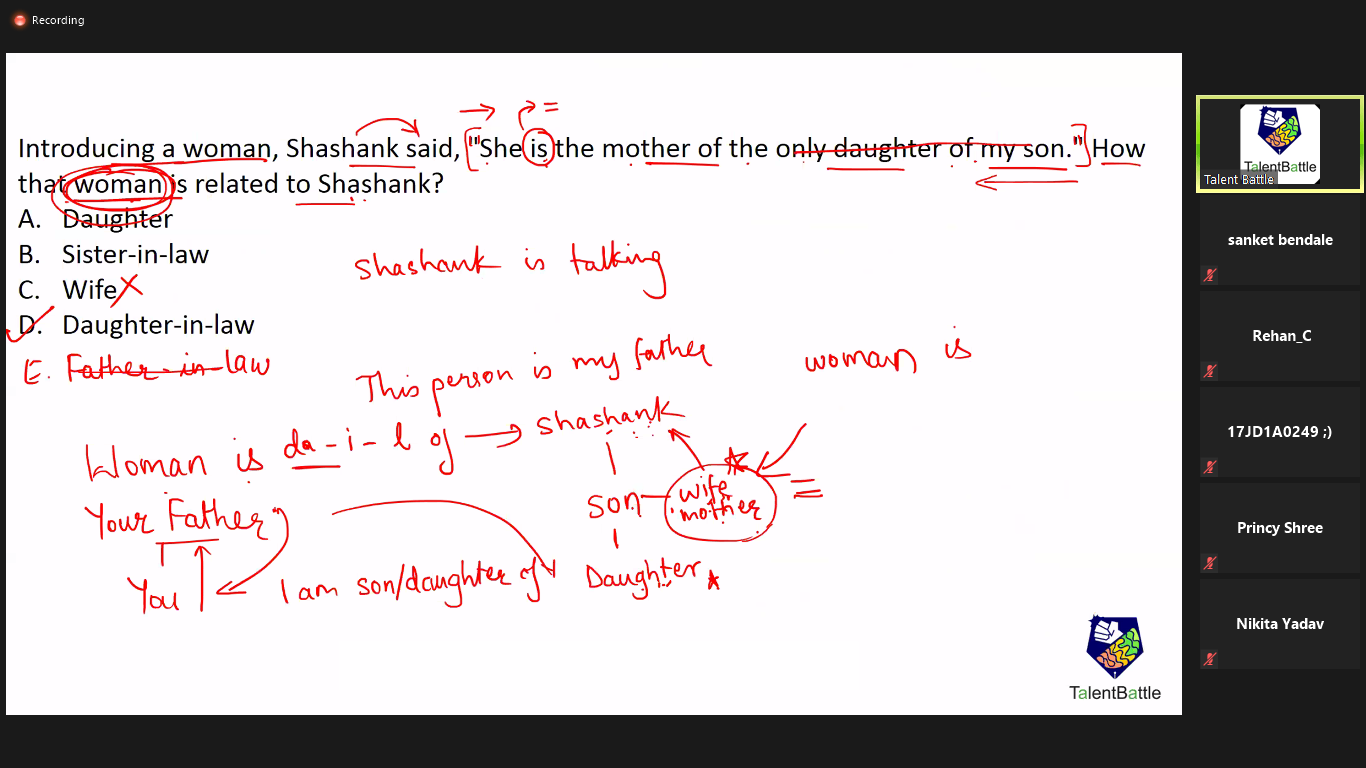 Recording
Introducing a woman, Shashank said, "She is the mother of the only daughter of my son." How
that woman is related to Shashank?
A. Daughter
B. Sister-in-law
C. Wife
D. Daughter-in-law
E. Father-in-law
Shashank is talking
This person is my father
woman is
Woman is da-i-l of → Shashank
son wife
mother
Your Father
You
I am son/daughter of
Daughter
TalentBattle
TalentBattle
Talent Battle
sanket bendale
Rehan_C
17JD1A0249 ;)
Princy Shree
Nikita Yadav